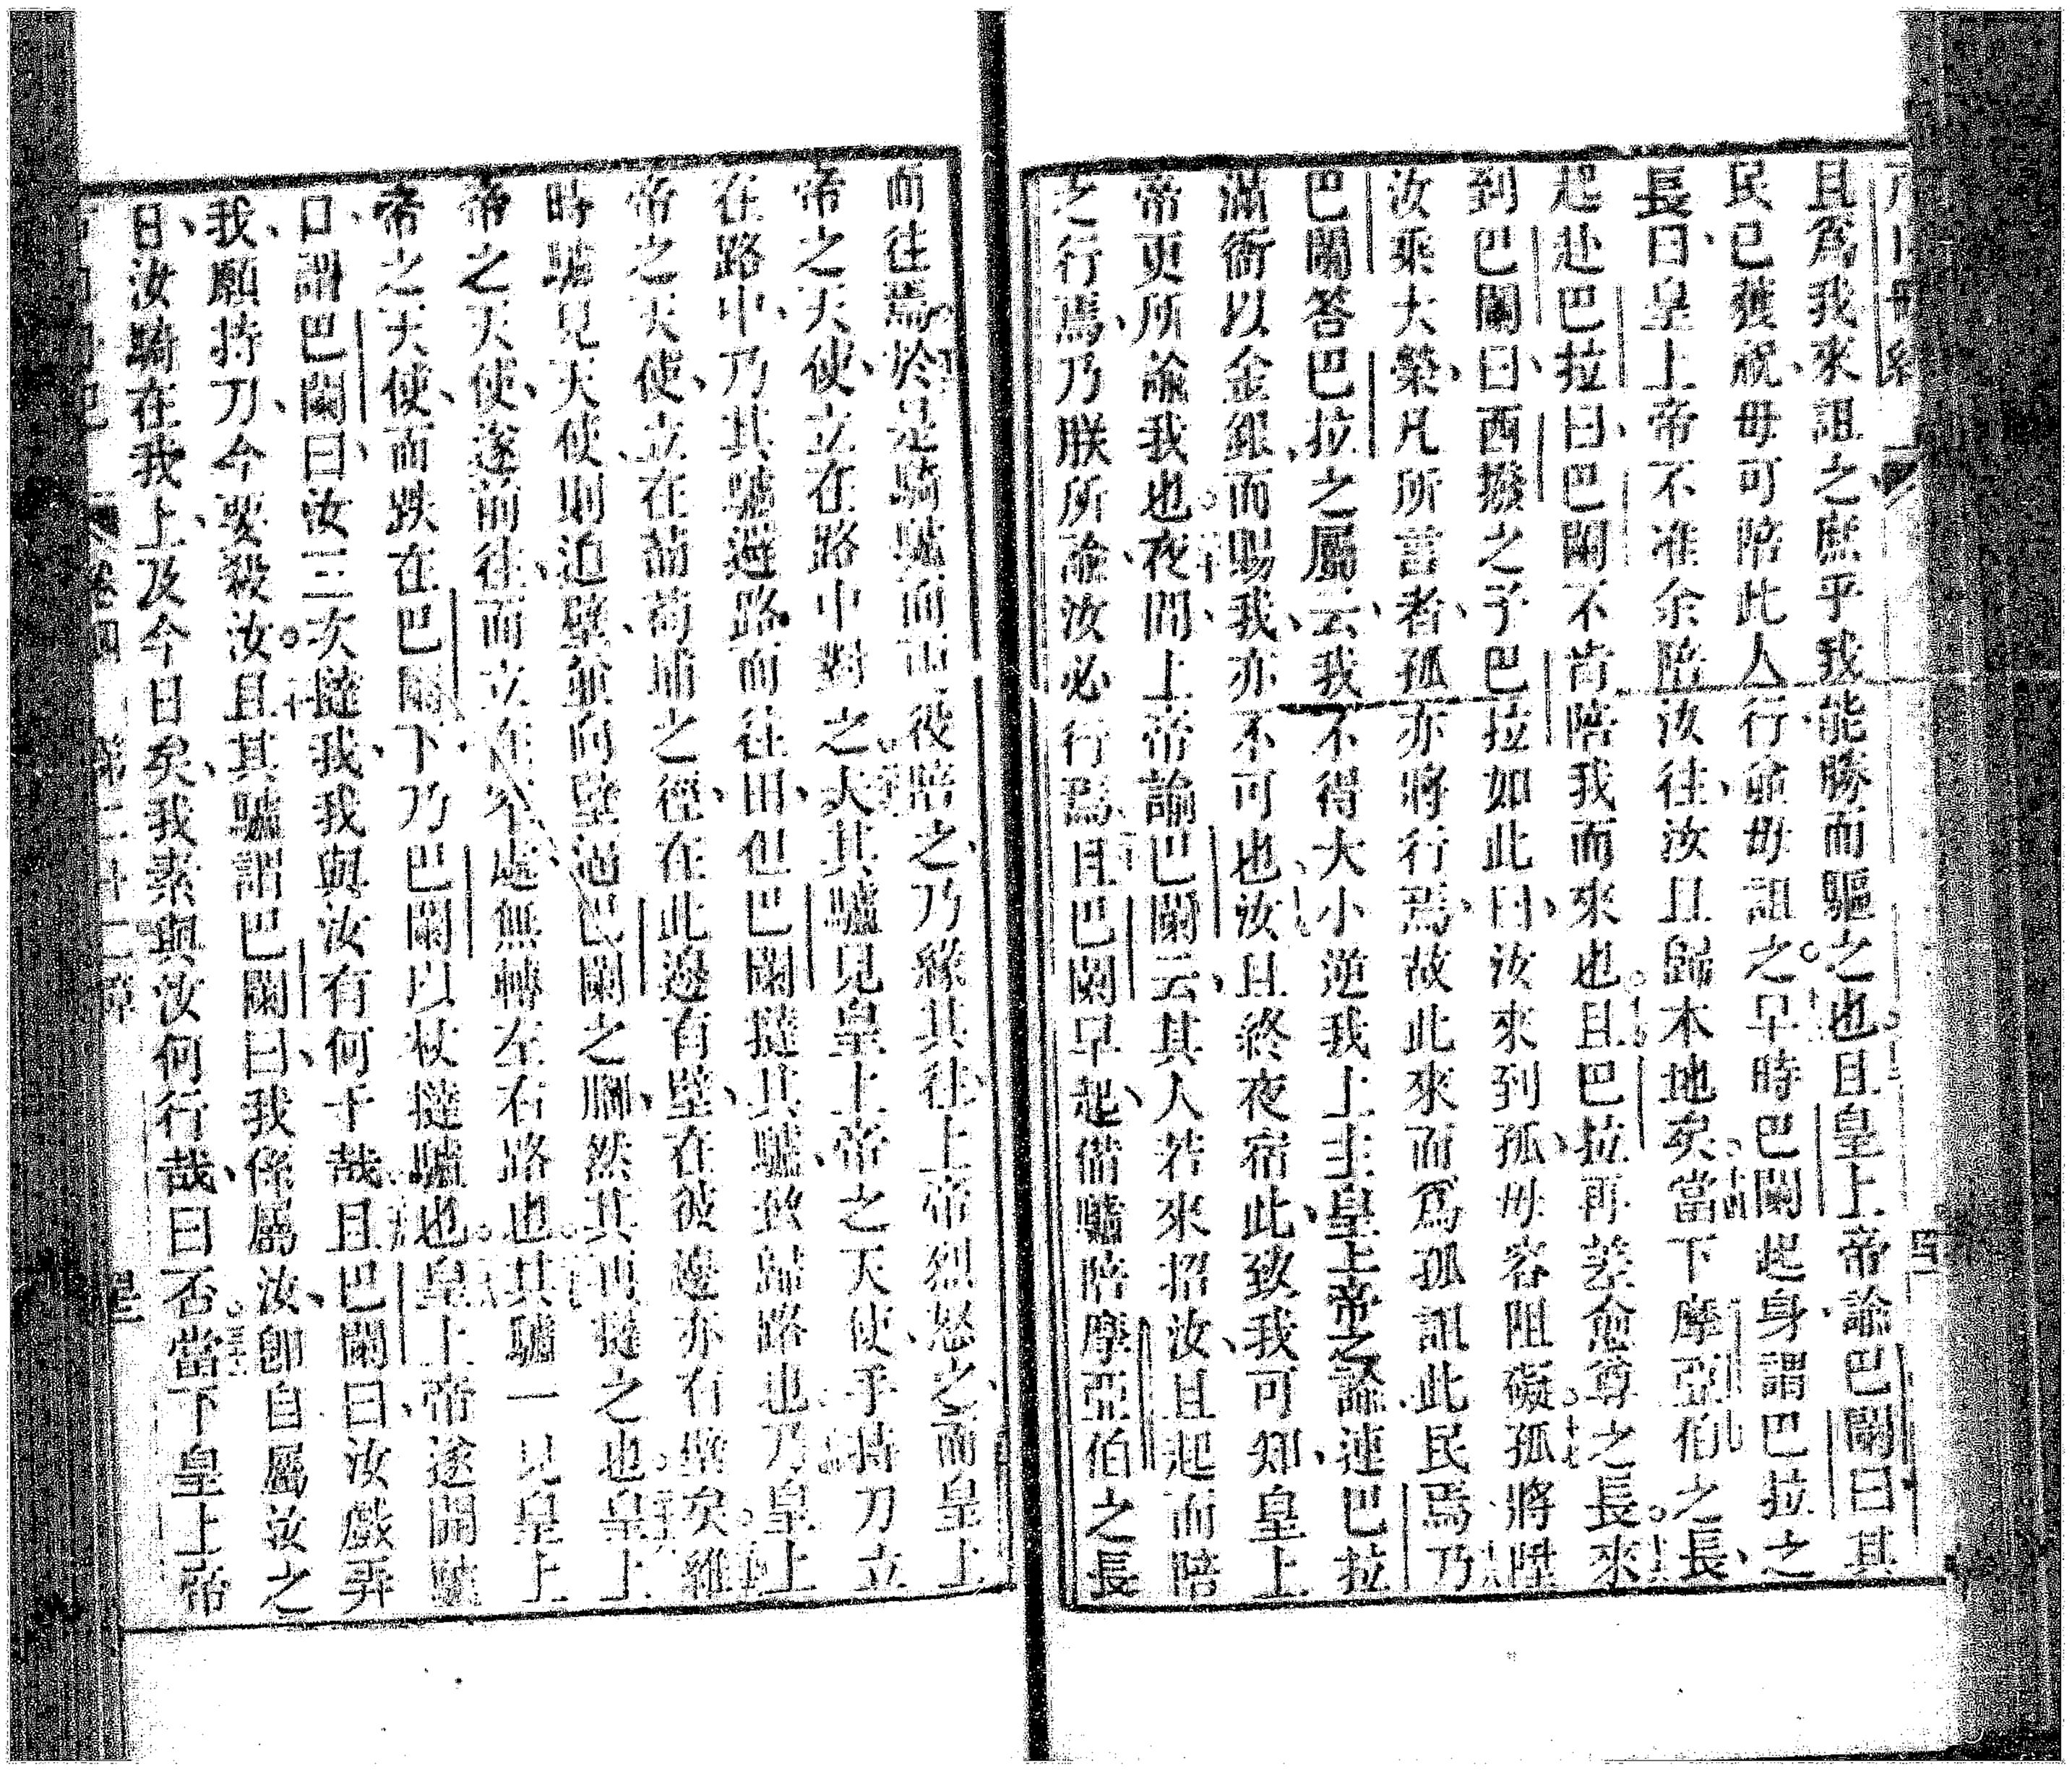 且爲我來詛之庶乎我能勝而驅之也且皇上帝諭巴闌曰其
民已獲祝毋可陪此人行毋詛之早時巴闌起身謂巴拉之
長曰皇上帝不准余陪汝往汝且歸本地矣當下摩亞伯之長
起赴巴拉曰巴闌不肯陪我而來也且巴拉再差愈尊之長來
到巴闌曰西撥之子巴拉如此曰汝來到孤毋容阻礙孤將陞
汝乘大榮凡所言者孤亦將行焉故此來而爲孤詛此民焉乃
巴闌答巴拉之屬云我不得大小逆我上主皇上帝之諭連巴拉
滿衙以金銀而賜我亦不可也汝且終夜宿此致我可知皇上
帝更所諭我也夜間上帝諭巴闌云其人若來招汝且起而陪
之行焉乃朕所諭汝必行焉且巴闌早起備驢陪摩亞伯之長
而往焉於是騎驢而面役陪之乃緣其往上帝烈怒之而皇上
帝之天使立在路中對之夫其驢見皇上帝之天使手持刀立
在路中乃其驢避路而往田但巴闌撻其驢致歸路也乃皇上
帝之天使立在葡萄埔之徑在此邊有壁在彼邊亦有壁矣雅
時驢見天使則迫壁並向壁逼巴闌之腳然其再撻之也皇上
帝之天使遂前往而立在窄處無轉左右路也其驢一見皇上
帝之天使而跌在巴闌下乃巴闌以杖撻驢也皇上帝遂開驢
口謂巴闌曰汝三次撻我我與汝有何干哉且巴闌曰汝戲弄
我願持刀今要殺汝且其驢謂巴闌曰我係屬汝卽自屬汝之
日汝騎在我上及今日矣我素與汝何行哉曰否當下皇上帝
卷四 第二十二章